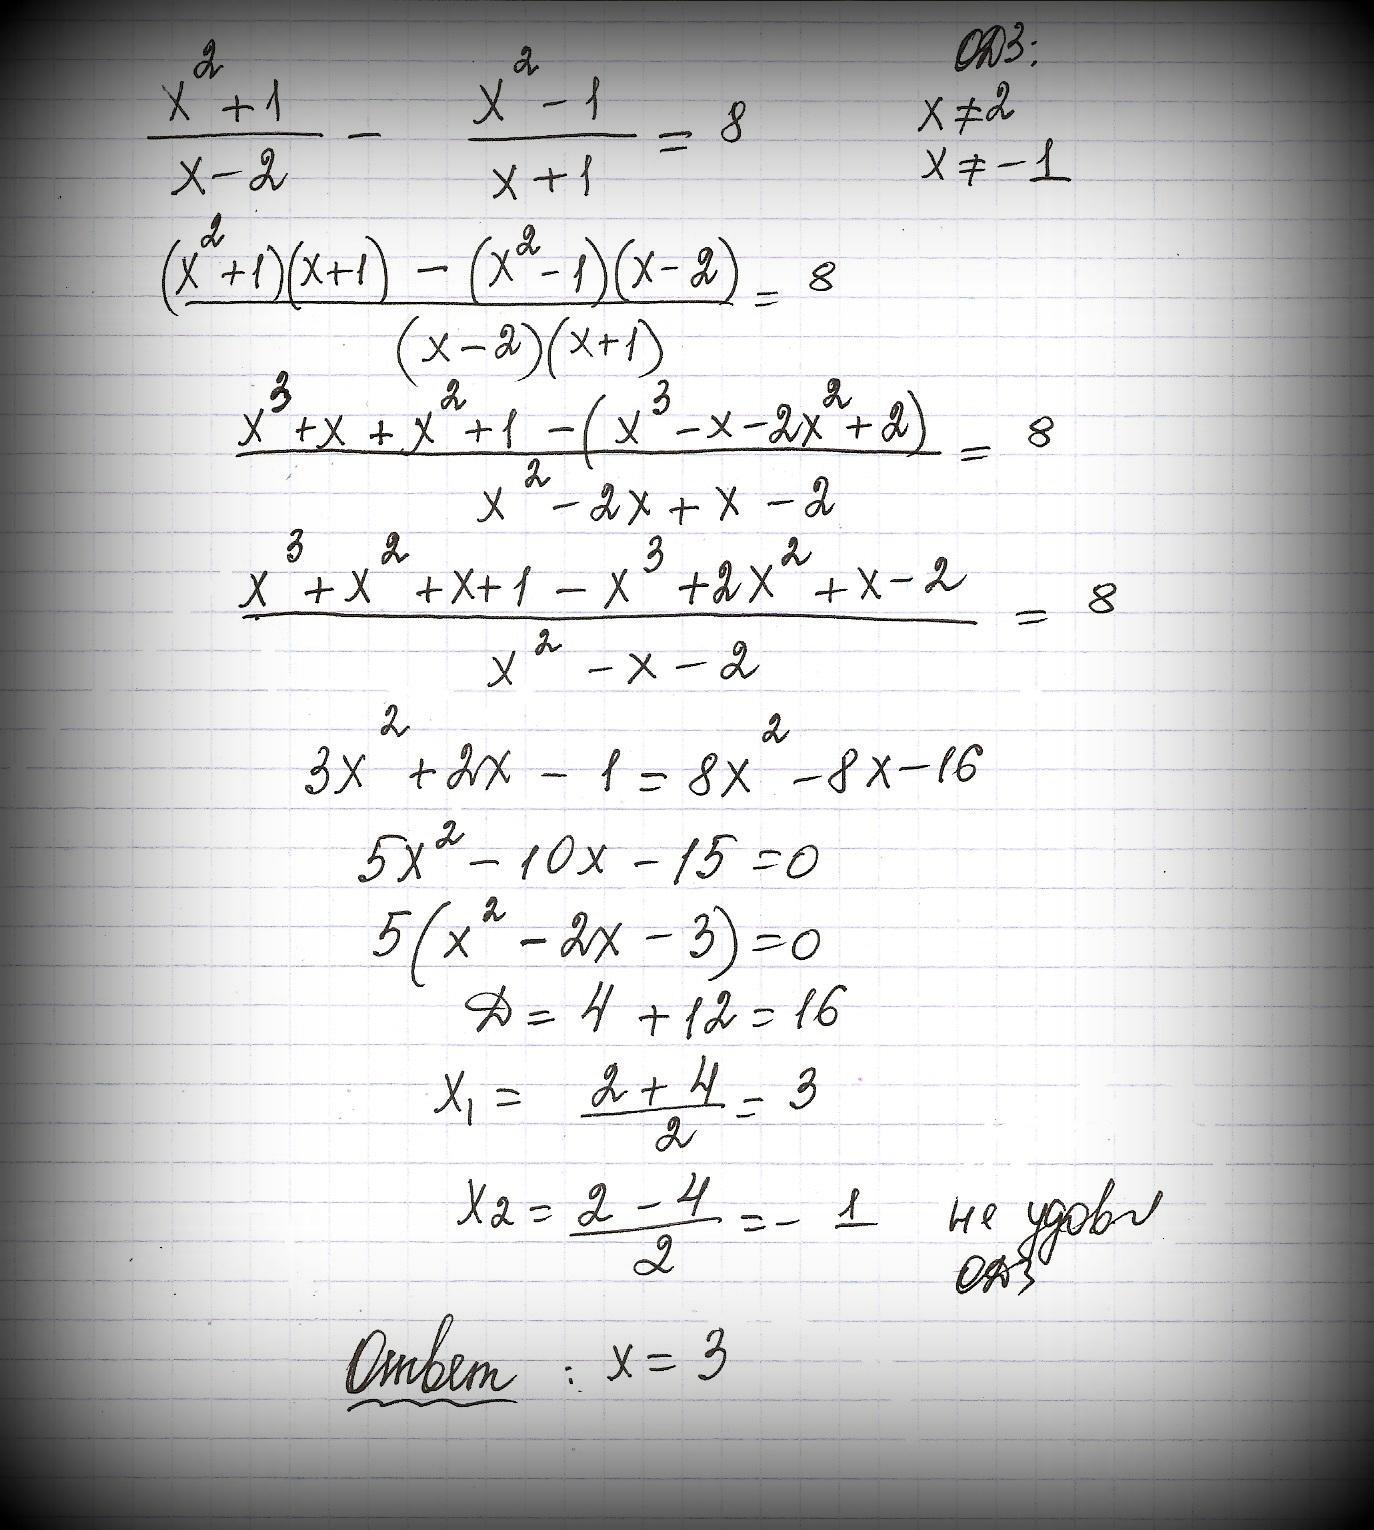 (x²+1)/(x-2) - (x²-1)/(x+1) = 8
ОДЗ:
x≠2
x≠-1
((x²+1)(x+1) - (x²-1)(x-2))/((x-2)(x+1)) = 8
(x³+x+x²+1-(x³-x-2x²+2))/(x²-2x+x-2) = 8
(x³+x²+x+1-x³+2x²+x-2)/(x²-x-2) = 8
3x²+2x-1=8x²-8x-16
5x²-10x-15=0
5(x²-2x-3)=0
Д=4+12=16
x₁=(2+4)/2=3
x2=(2-4)/2=-1 не удовл
ОДЗ
Ответ: x=3